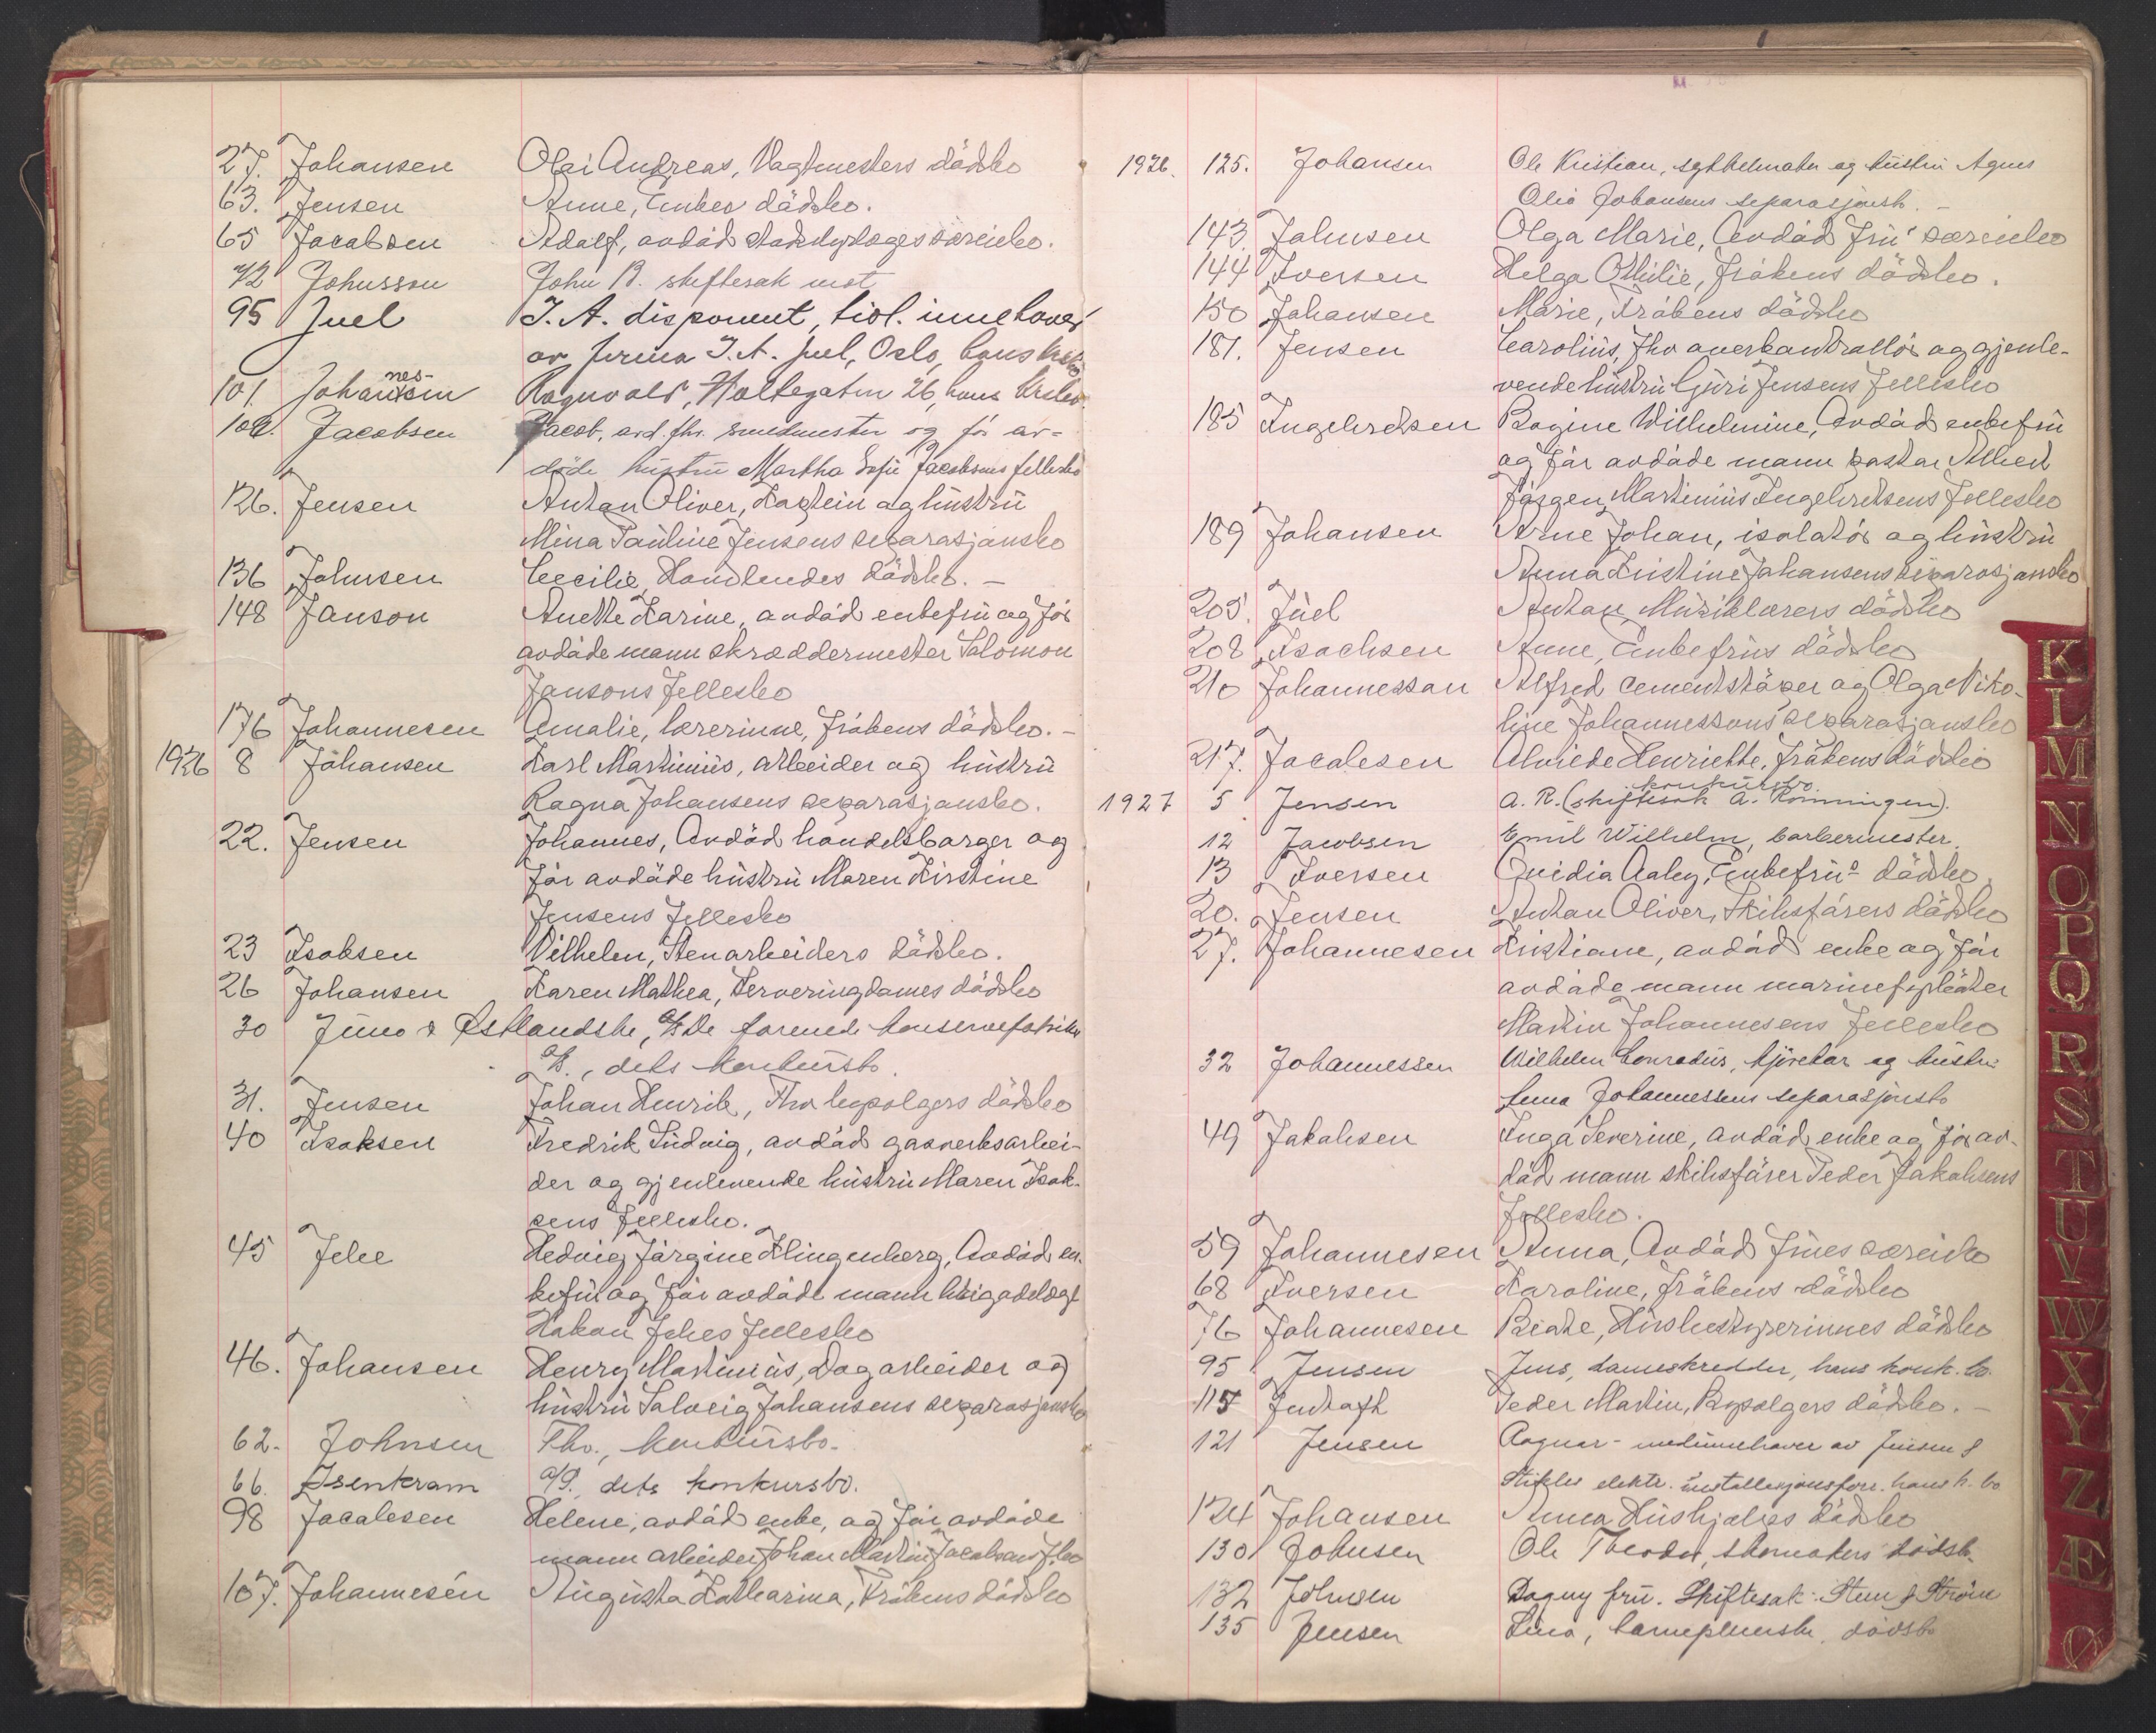 27. Johansen Olai Andreas, Vagtmesters dödsbo
63. Jensen Anne, Enkes dödsbo.
65 Jacobsen Adolf, avdöd stadsdyrlæges særeiebo.
72 Johnsson John B. skiftesak mot
95 Juel J. A. disponent, tidl. innehaver
av firma J. A. Juel, Oslo, hans
101. Johannessen Ragnvald, Holtegaten 26, hans
102. Jacobsen Jacob, avd. fhv. smedmester og för av-
döde hustru Martha Sofie Jacobsens fellesbo
126. Jensen Anton Oliver, Kaptein og hustru
Mina Pauline Jensens separasjonsbo
136 Johnsen Cecilie, Handlendes dödsbo. –
148 Janson Anette Karine, avdöd enkefru og för
avdöde mann skræddermester Salomon
Jansons Fellesbo
176 Johannesen Amalie, lærerinne, Frökens dödsbo. –
1926 8 Johansen Karl Martinius, arbeider og hustru
Ragna Johansens separasjonsbo.
22. Jensen Johannes, Avdöd handelsborger og
för avdöde hustru Maren Kirstine
Jensens Fellesbo
23 Isaksen Vilhelm, Stenarbeiders dödsbo.
26 Johansen Karen Mathea, Serveringsdames dödsbo
30 Juno & Østlandske, A/S De forenede konservefabriker
A/S., dets konkursbo.
31. Jensen Johan Henrik, Fhv. bypolgers dödsbo
40 Isaksen Fredrik Ludvig, avdöd gasverksarbei-
der og gjenlevende hustru Maren Isak-
sens Fellesbo.
45 Jelse Hedvig Jörgine Klingenberg, Avdöd en-
kefru og för avdöde mann brigadelæge
Hakon Fellesbo
46. Johansen Henry Martinius, Dagarbeider og
hustru Solveig Johansens separasjonsbo
62. Johnsen Thv., konkursbo.
66. Isenkram A/S. dets konkursbo.
98 Jacobsen Helene, avdöd enke, og för avdöde
mann arbeider Johan Martin Jacobsens f.bo
107. Johannesen Augusta Katharina, Frökens dödsbo
1926. 125. Johansen Ole Kristian, og hustru Agnes
Olea Johansens separasjonsb. –
143. Johnsen Olga Marie, Avdöd Frus særeiebo
144 Iversen Helga Othilie, Frökens dödsbo.
150 Johansen Marie, Frökens dödsbo
181. Jensen Carolius, Fhv. overkontrollör og gjenle-
vende hustru Guri Jensens Fellesbo
185 Ingebretsen Bogine Wilhelmine, Avdöd enkefru
og för avdöde mann pastor Albert
Jörgen Martinius Ingebretsens Fellesbo
189 Johansen Arne Johan, isolatör og hustru
Anna Kristine Johansens separasjonsbo
205. Juel Anton, Musiklærers dödsbo
208 Isachsen Anne, Enkefrus dödsbo
210 Johannesson Alfred cementstöper og Olga Niko-
line Johannessons separasjonsbo
217. Jacobsen Alvilde Henriette, Frökens dödsbo
konkursbo
1927 5 Jensen A. R. (skiftesak A. Rönningen).
12 Jacobsen Emil Wilhelm, barbermester.
13 Iversen Ovidia Aaby, Enkefrus dödsbo
20. Jensen Anton Oliver, Skibsförers dödsbo
27. Johannesen Kristiane, avdöd enke og för
avdöde mann marinefyrböter
Martin Johannesens Fellesbo
32 Johannessen Wilhelm Conradius, kjörekar og hustru
Johannessens separasjonsbo
49 Jakobsen Inga Severine, avdöd enke og för av-
död mann skibsförer Peder Jakobsens
Fellesbo.
59 Johannesen Anna, Avdöd Frues særeiebo
68 Iversen Karoline, Frökens dödsbo
76 Johannesen Beate, Husbestyrerinnes dödsbo
95 Jensen Jens, dameskredder, hans konk. bo.
117 Jentoft Peder Martin, Bypolgers dödsbo. –
121 Jensen Ragnar - medinnehaver av Jensen &
elektr. installasjonsforr. hans k. bo
124 Johansen Anna Hushjelps dödsbo
130 Johnsen Ole Theodor, skomakers dödsb.
132 Johnsen Dagny fru. Skiftesak: Steen & Ström
135 Jensen Lina, barnepleierske, dödsbo
K
L
M
N
O
P
Q
R
S
T
U
V
W
X
Y
Z
Æ
Ø